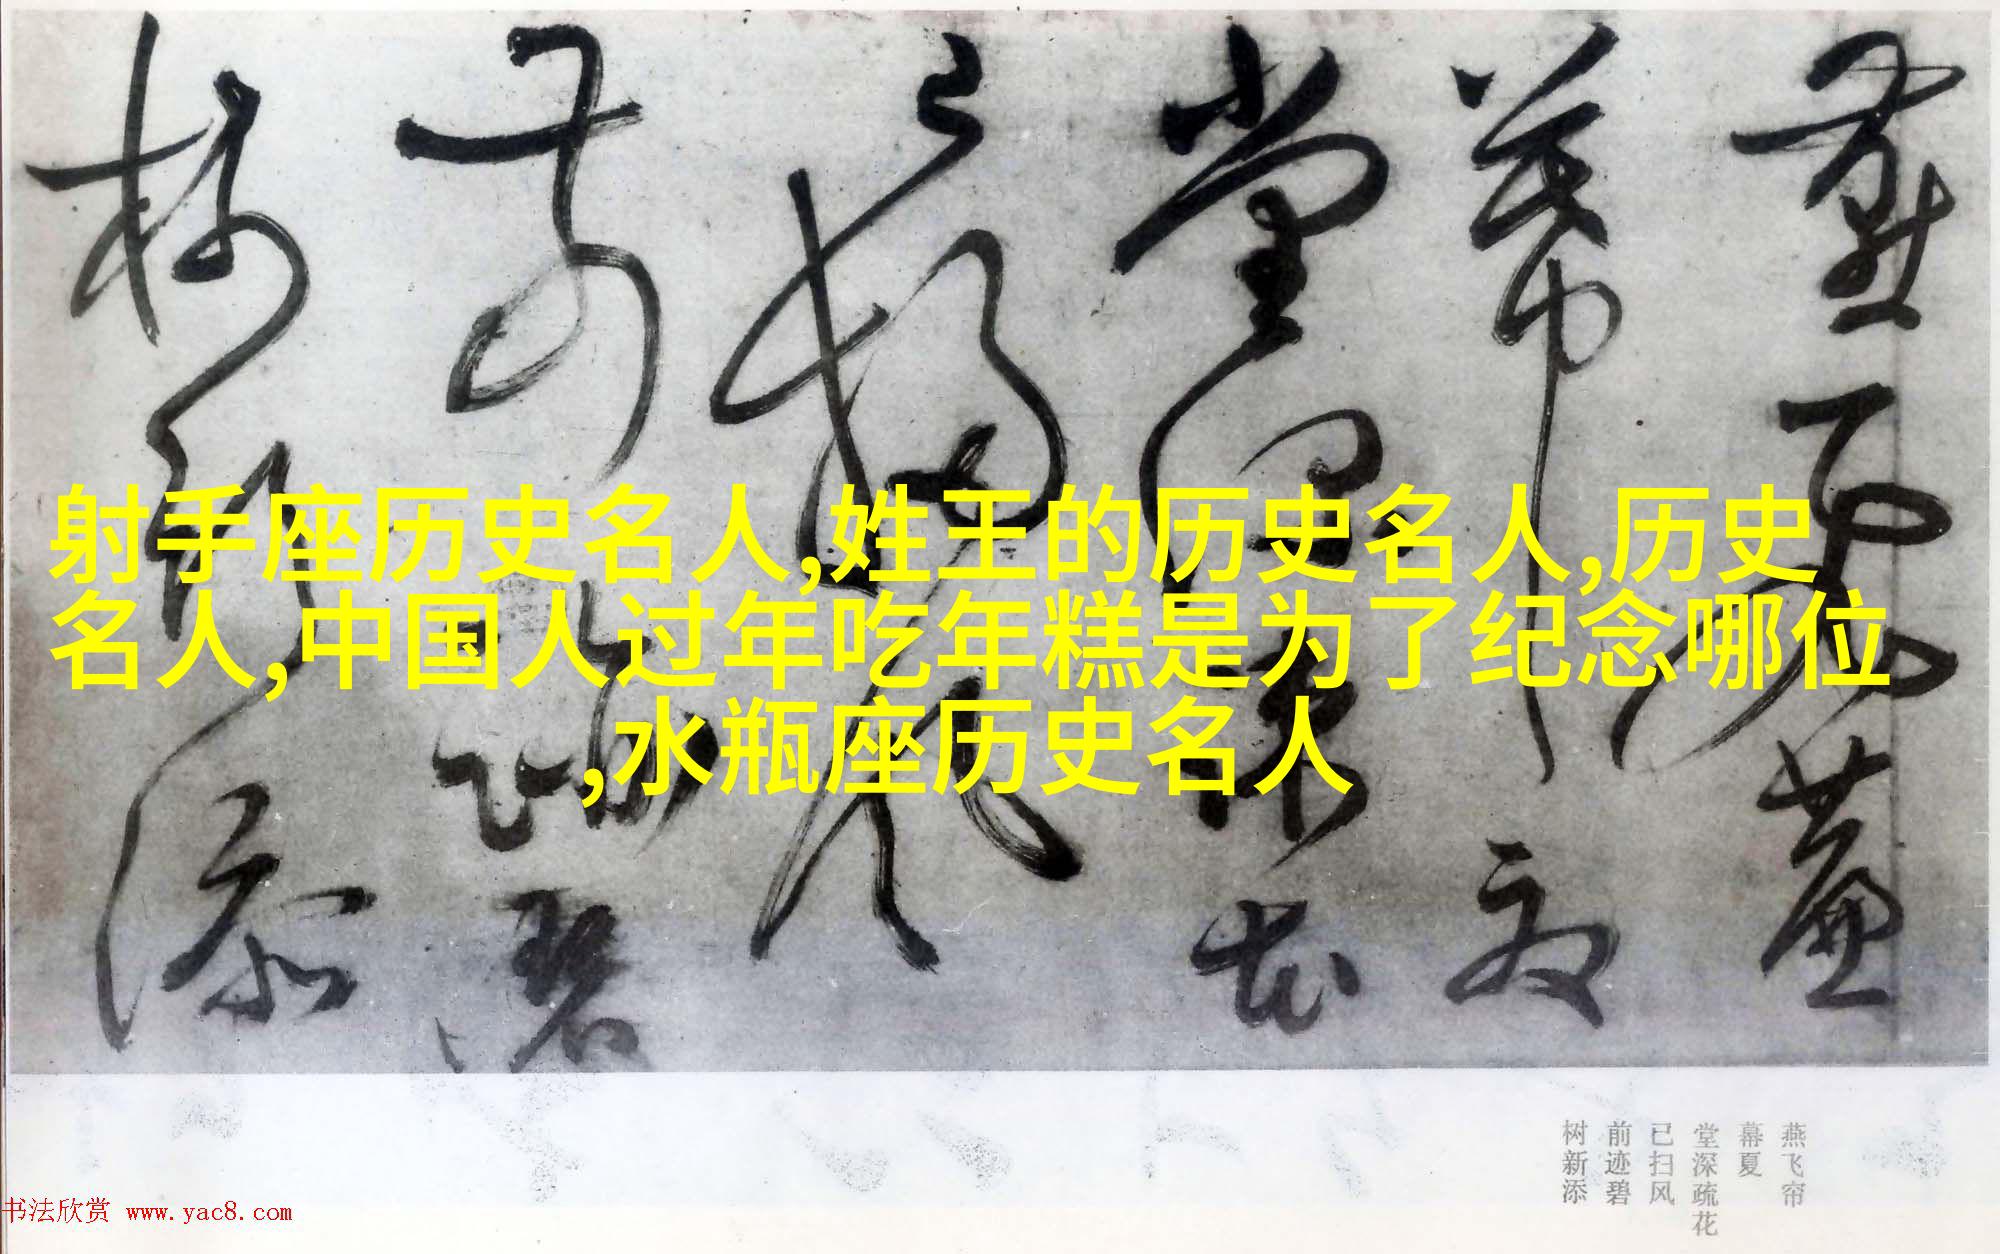 射手座历史名人,姓王的历史名人,历史
名人,中国人过年吃年糕是为了纪念哪位
,水瓶座历史名人
燕飞帘
幕夏
堂深疏花
已扫风
前迹碧
树新添
书法欣赏 www.yac8.com